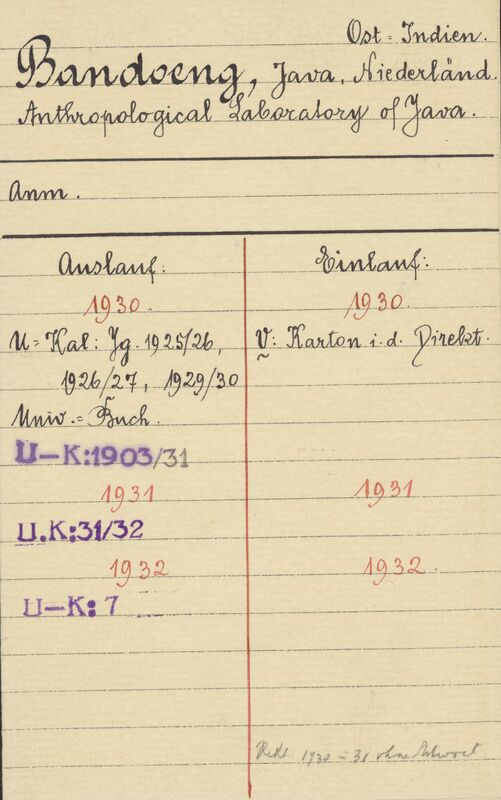 Ost-Indien.
Bandoeng, Java, Niederländ.
Anthropological Laboratory of Java.
Anm.
Auslauf:
1930.
U-Kal: Jg. 1925/26,
1926/27, 1929/30
Univ.-Buch.
U-K:1903/31
1931
U.K:31/32
1932
U-K: 7
Einlauf:
1930.
V: Karton i. d. Direkt.
1931
1932.
Rekl. 1930 u 31 ohne Antwort